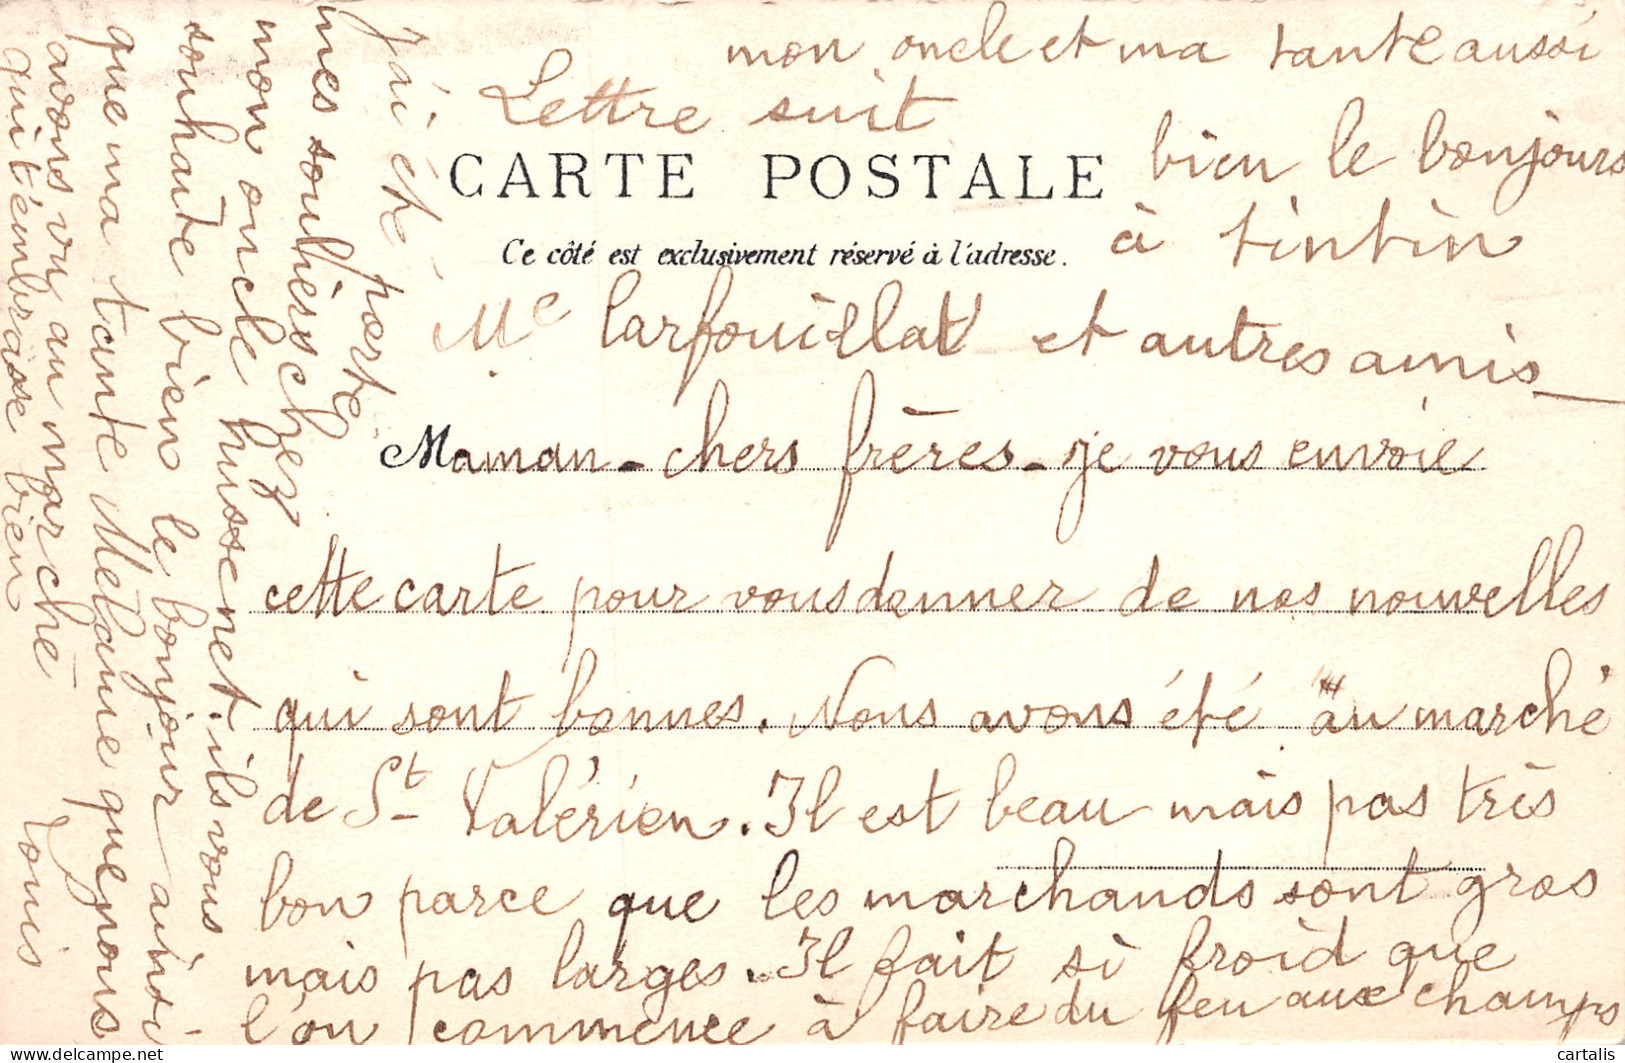 mon oncle et ma tante aussi
Lettre suit
CARTE POSTALE
bien le bonjours
Ce côté est exclusivement réservé à l'adresse.
à tintin
Me Carfouillat et autres amis
Maman - chers frères - je vous envoie
cette carte pour vous donner de nos nouvelles
qui sont bonnes. Nous avons été au marché
de St Valérien. Il est beau mais pas très
bon parce que les marchands sont gros
mais pas larges. Il fait si froid que
l'on commence à faire du feu aux champs
J'ai été porter
mes souliers chez
mon oncle hussenet. ils vous
souhaite bien le bonjour ainsi-
que ma tante Mélanie que nous
avons vu au marché
qui t'embrasse bien Louis
cartalis